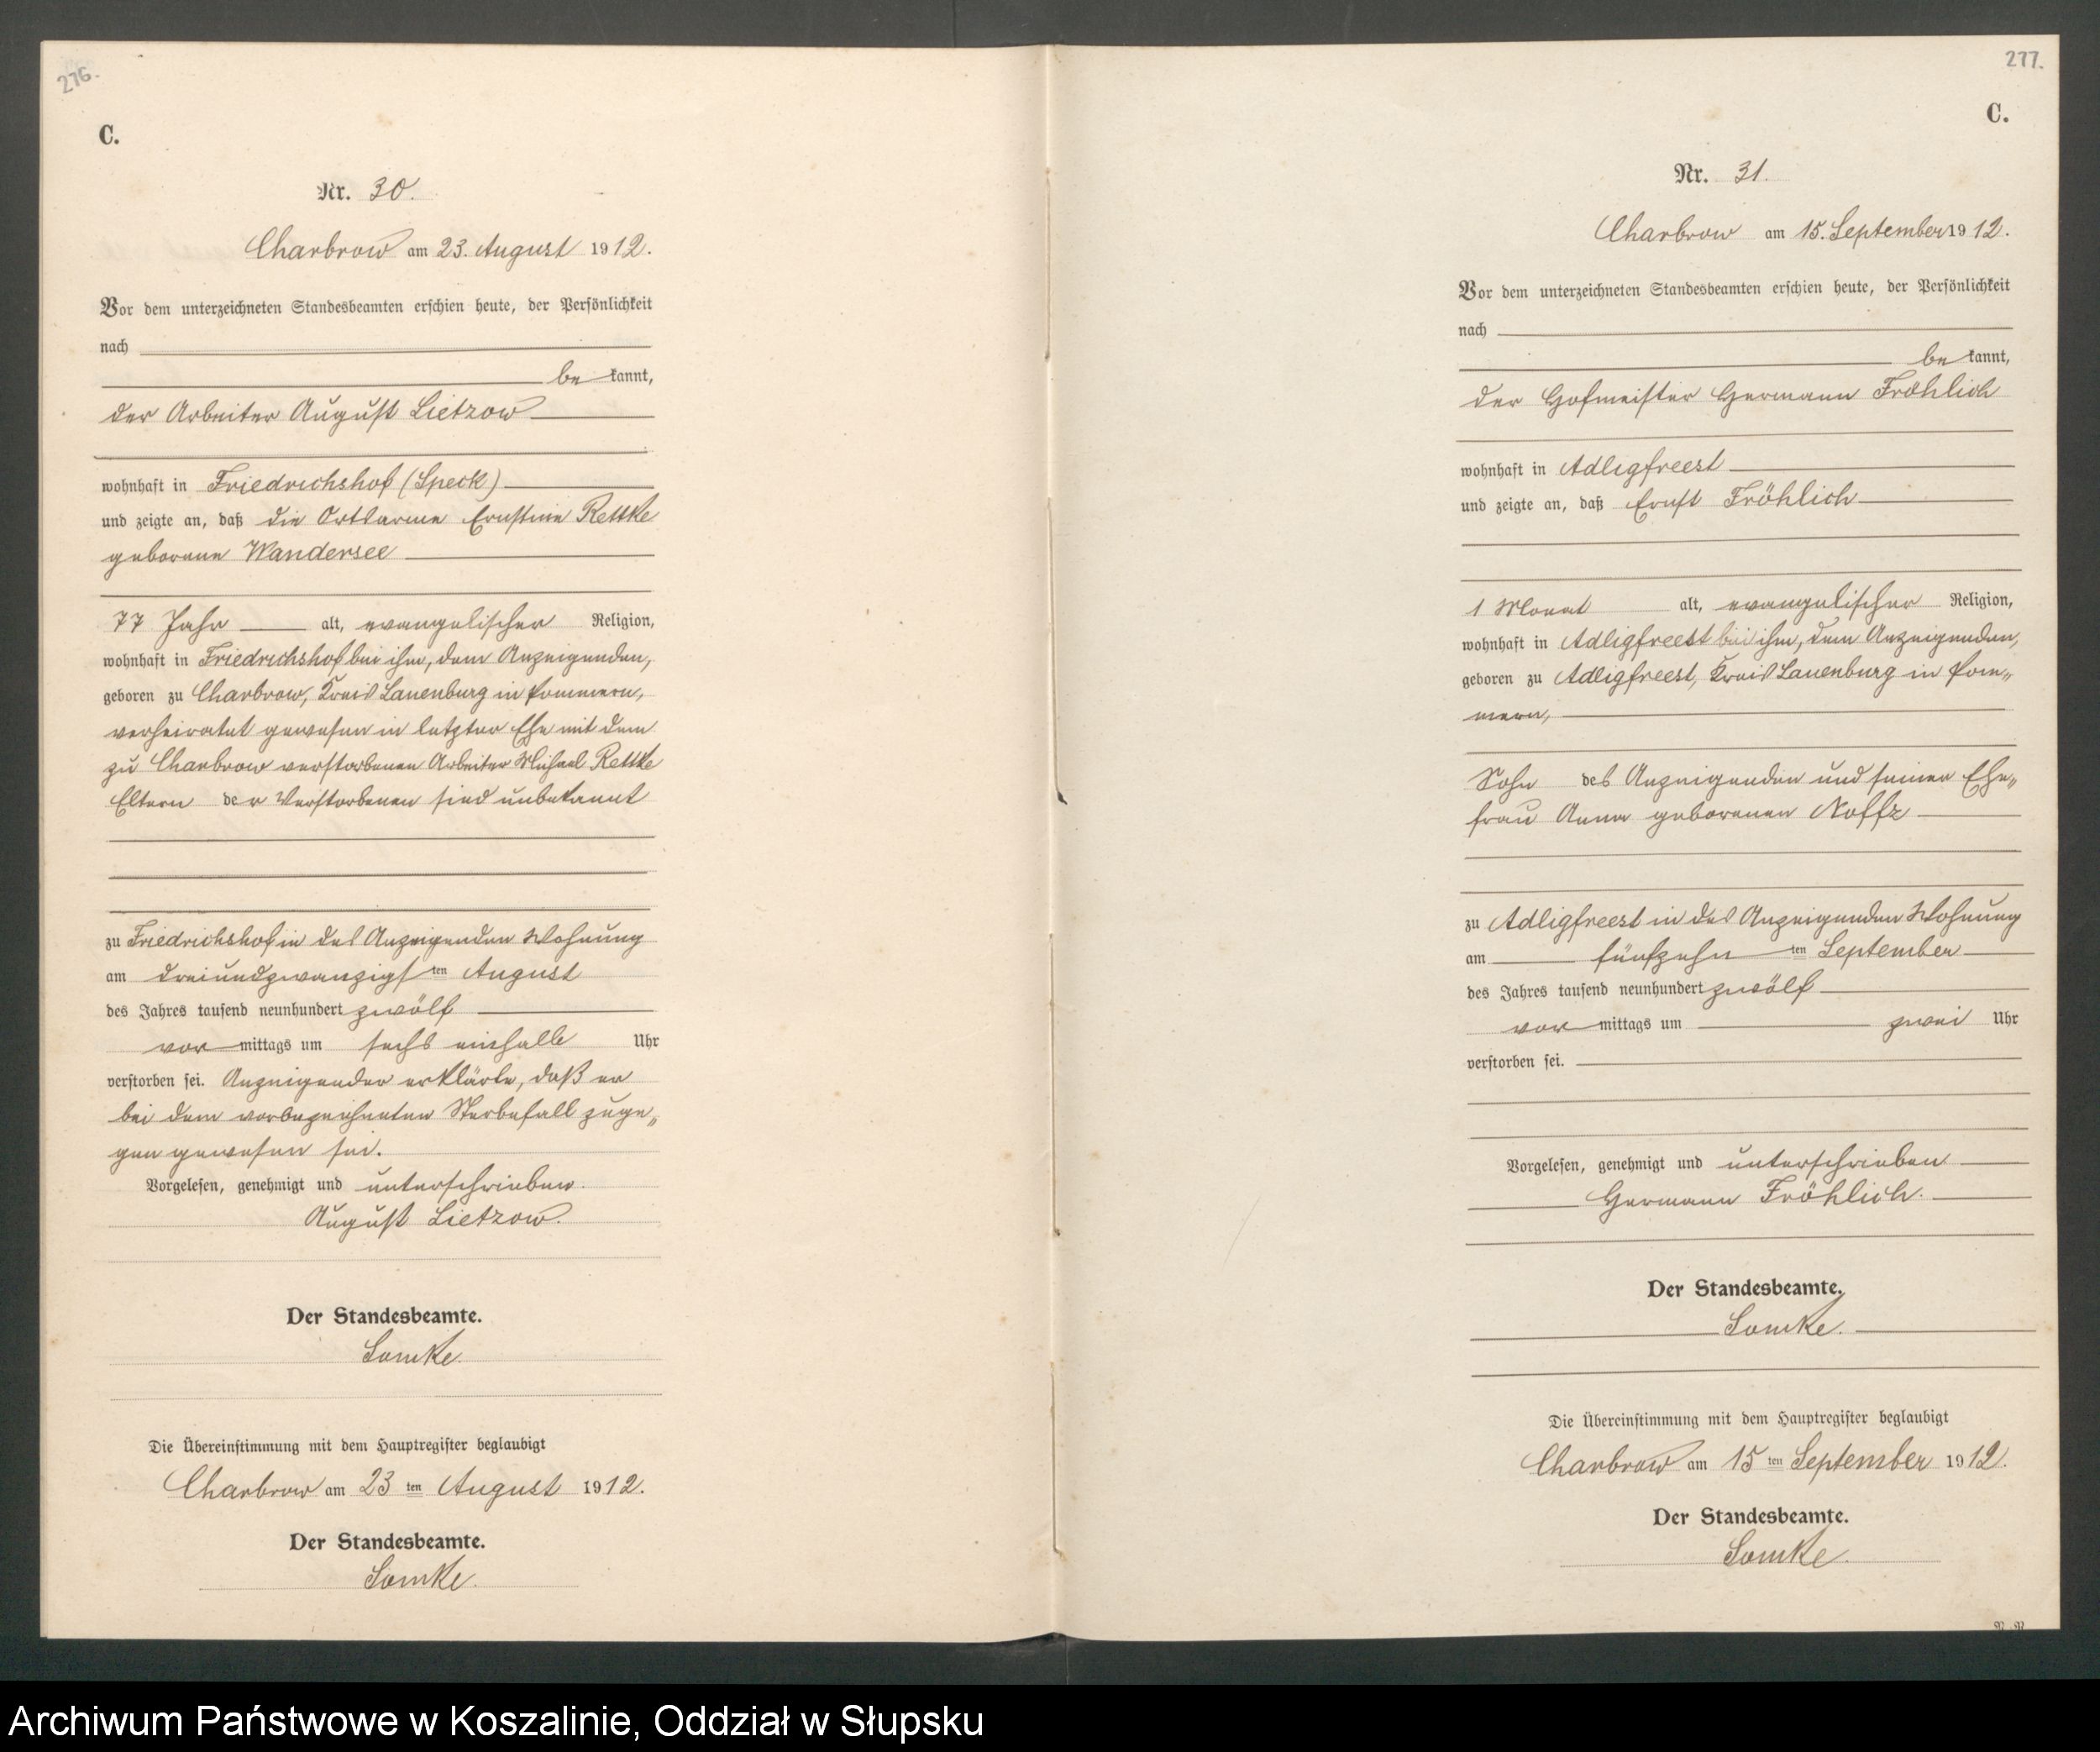 276.
C.
Nr. 30.
Charbrow am 23. August 1912.
Vor dem unterzeichneten Standesbeamten erschien heute, der Persönlichkeit
nach
be kannt,
der Arbeiter August Lietzow
wohnhaft in Friedrichshof (Speck)
und zeigte an, daß die Ortsarme Ernstine Rettke
geborene Wandersee
77 Jahr alt, evangelischer Religion,
wohnhaft in Friedrichshof bei ihm, dem Anzeigenden,
geboren zu Charbrow, Kreis Lauenburg in Pommern,
verheiratet gewesen in letzter Ehe mit dem
zu Charbrow verstorbenen Arbeiter Michael Rettke
Eltern der Verstorbenen sind unbekannt
zu Friedrichshof in des Anzeigenden Wohnung
am dreiundzwanzigsten August
des Jahres tausend neunhundert zwölf
vor mittags um sechs einhalb Uhr
verstorben sei. Anzeigender erklärte, daß er
bei dem vorbezeichneten Sterbefall zuge„
gen gewesen sei.
Vorgelesen, genehmigt und unterschrieben.
August Lietzow.
Der Standesbeamte.
Die Übereinstimmung mit dem Hauptregister beglaubigt
Charbrow am 23 ten August 1912.
Der Standesbeamte.
277.
C.
Nr. 31.
Charbrow am 15. September 1912.
Vor dem unterzeichneten Standesbeamten erschien heute, der Persönlichkeit
nach
be kannt,
der Hofmeister Hermann Fröhlich
wohnhaft in Adligfreest
und zeigte an, daß Ernst Fröhlich
1 Monat alt, evangelischer Religion,
wohnhaft in Adligfreest bei ihm, dem Anzeigenden,
geboren zu Adligfreest, Kreis Lauenburg in Pom„
mern,
Sohn des Anzeigenden und seiner Ehe„
frau Anna geborenen Noffz
zu Adligfreest in des Anzeigenden Wohnung
am fünfzehnten September
des Jahres tausend neunhundert zwölf
vor mittags um zwei Uhr
verstorben sei.
Vorgelesen, genehmigt und unterschrieben
Hermann Fröhlich.
Der Standesbeamte.
Die Übereinstimmung mit dem Hauptregister beglaubigt
Charbrow am 15 ten September 1912.
Der Standesbeamte.
Archiwum Państwowe w Koszalinie, Oddział w Słupsku